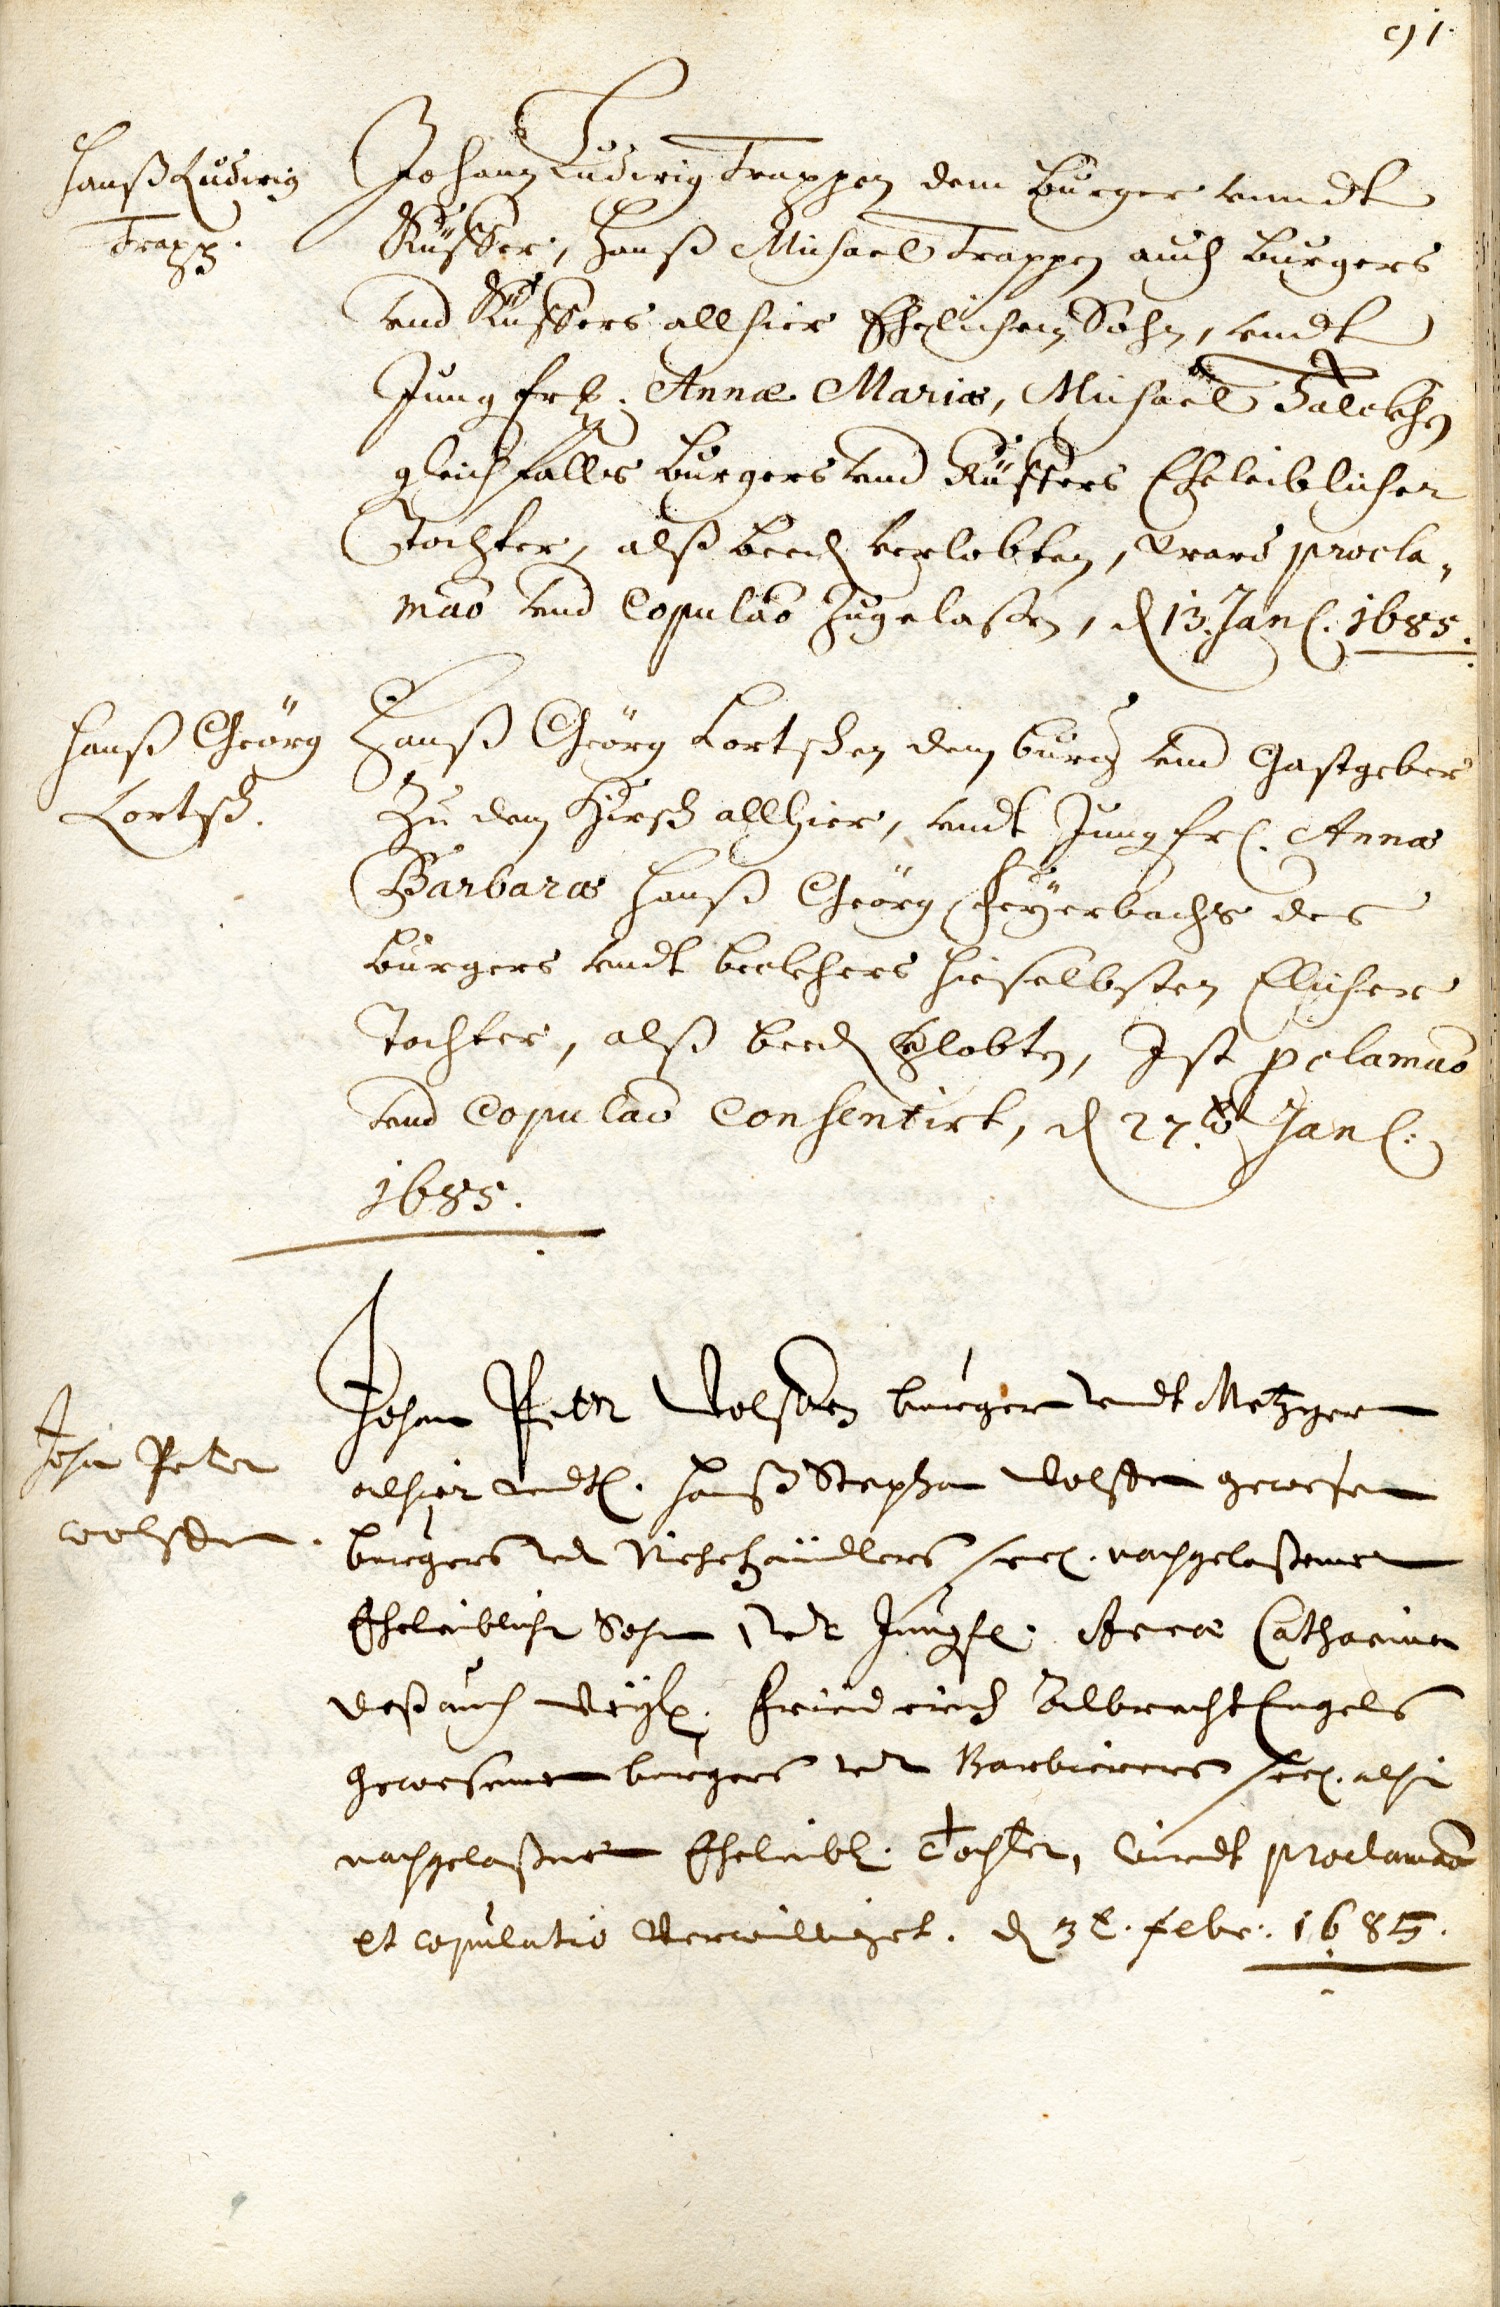 91.
Hanß Ludwig
Trapp.
Johann Ludwig Trappen dem burger vnndt
Küffer, Hanß Michael Trappen auch burgers
vnd Küffers allhier Ehelichem Sohn, vndt
Jungfr. Annæ Mariæ, Michaël
gleichfalls burgers vnd Küffers Eheleiblicher
Tochter, alß beed verlobten, ward procla„
mão vnd Copulão Zugelaßen, d 13. Jan. 1685.
Hanß Geörg
Lortsch.
Hanß Geörg Lortschen dem burg vnd Gastgeber
Zu dem Hirsch allhier, vndt Jungfr. Annæ
Barbaræ Hanß Geörg Feÿerbachs des
burgers vndt beckhers hieselbsten Ehlicher
Tochter, alß beed vlobten, Ist pclamão
vnd Copulão Consentirt, d 27. Jan.
1685.
Joha Peter
Wolffen.
Johan Peter Wolffen burger vndt Metzger
alhier vndt. Hanß Stephan Wolffen gewesen
burgers vndt Viehehändlers seel. nachgelaßenem
Eheleiblich Sohn, vndt Jungf. Anna Catharina
deß auch Weÿl. Friederich Albrecht Engels
gewesenen burgers vndt Barbierers seel. alhie
nachgelaßner Eheleibl. Tochter, Wirdt proclamão
et copulatio Verwilliget. d 3t. febr. 1685.